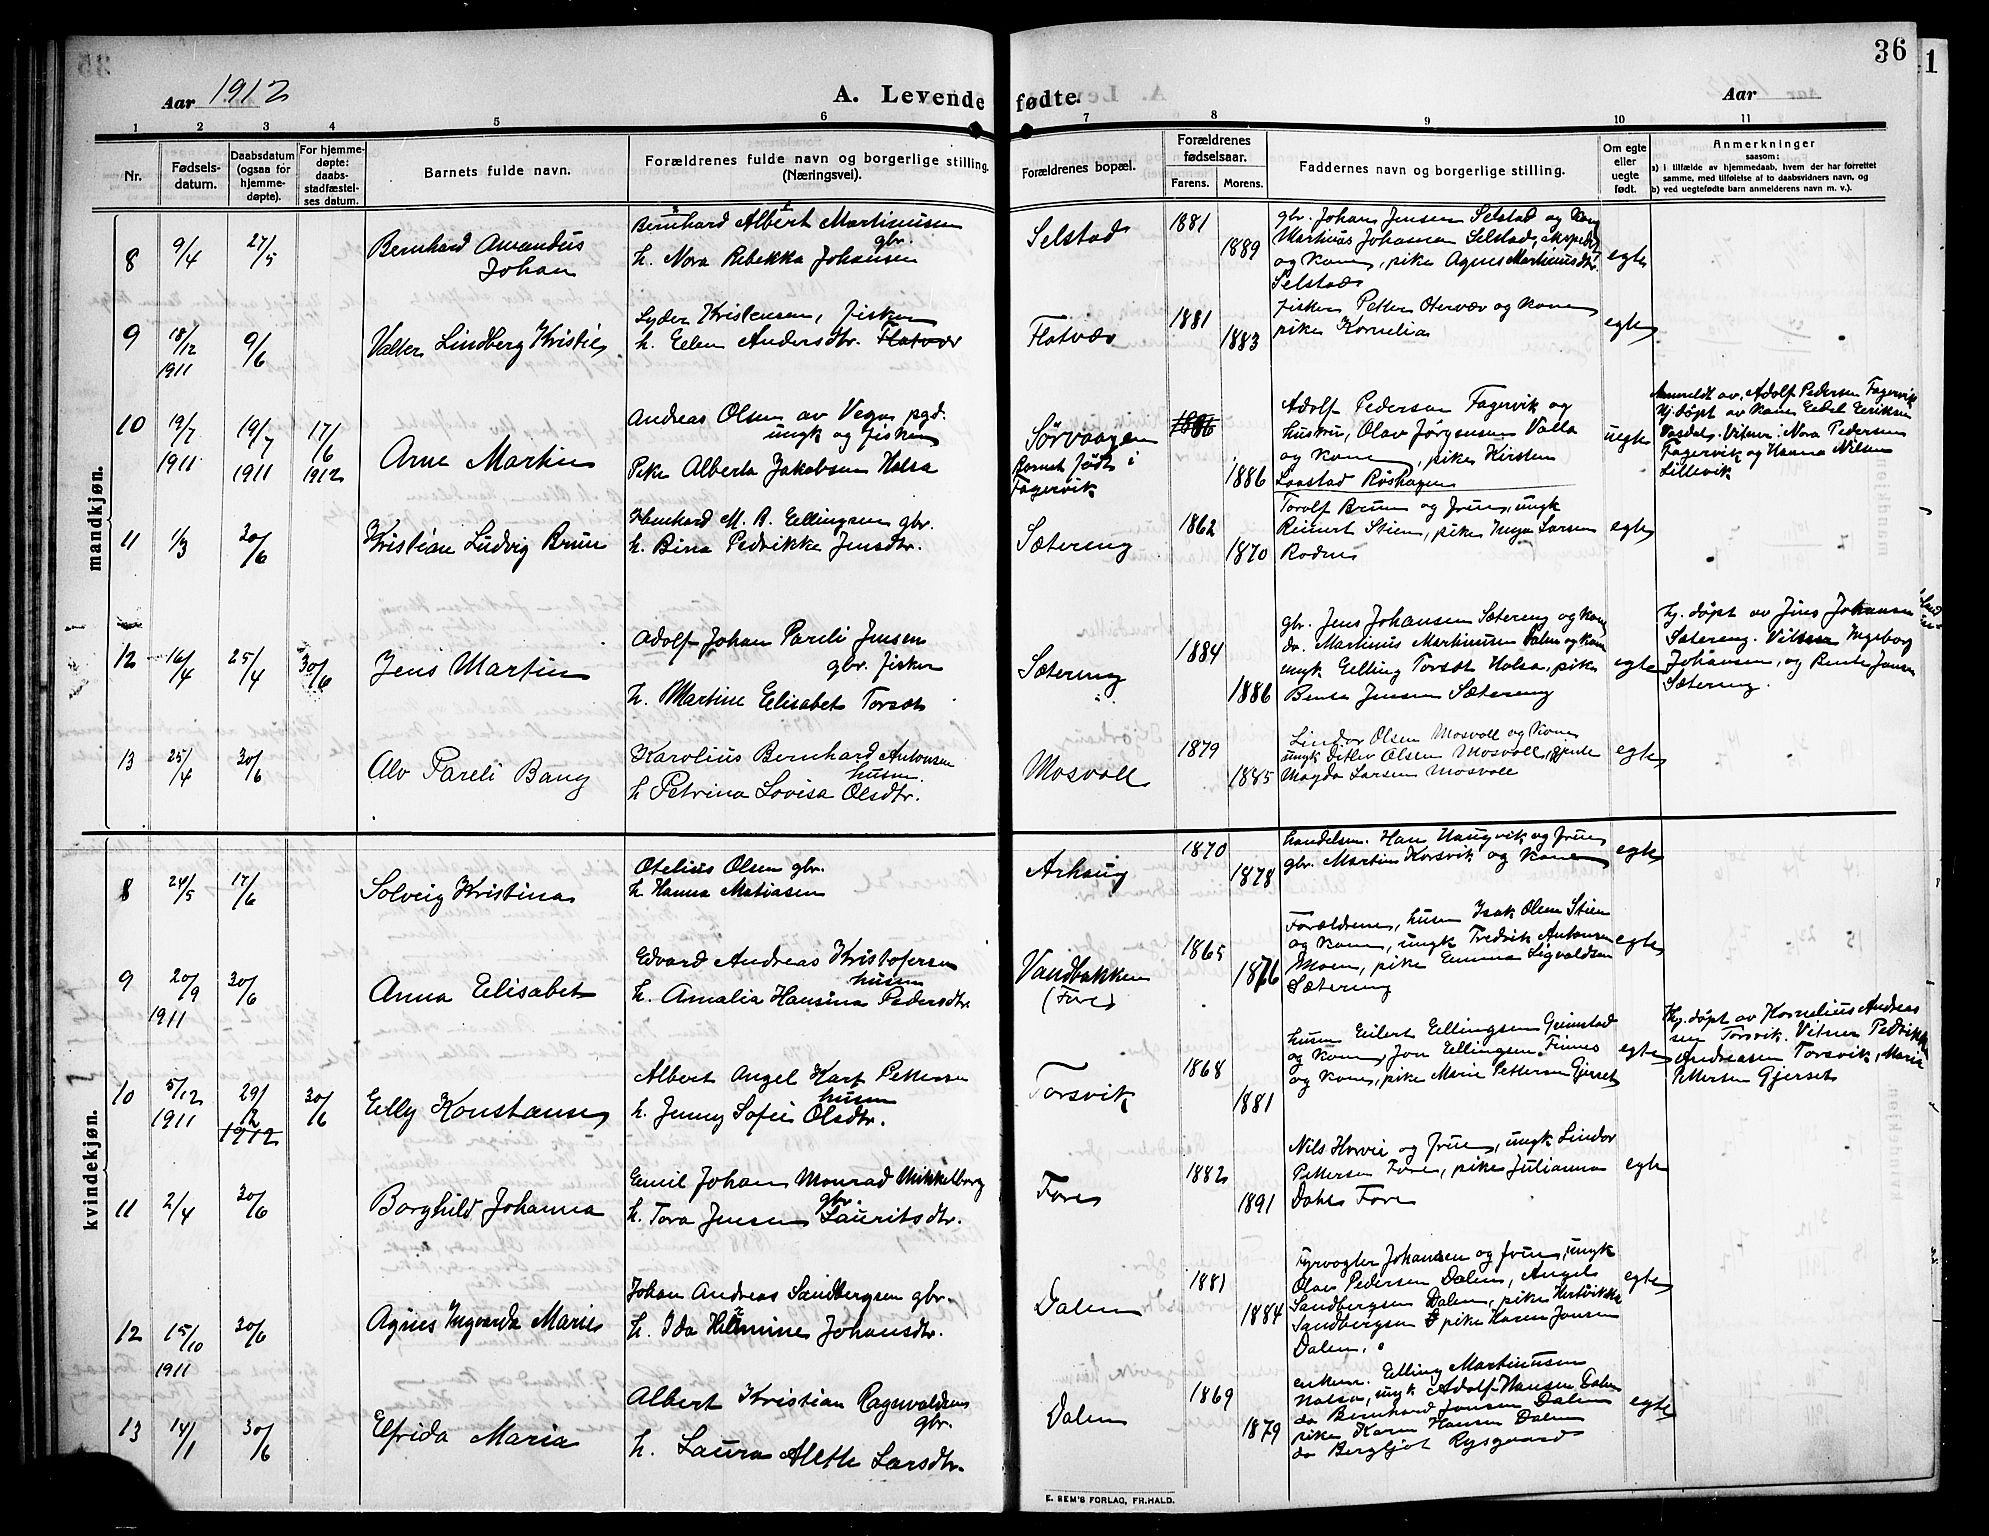 36
Aar 1912
A. Levende fødte.
Aar
1 2 3 4 5 6 7 8 9 10 11
Nr.
Fødsels-
datum.
Daabsdatum
(ogsaa for
hjemme-
døpte).
For hjemme-
døpte:
daabs-
stadfæstel-
ses datum.
Barnets fulde navn.
Forældrenes fulde navn og borgerlige stilling.
(Næringsvei).
Forældrenes bopæl.
Forældrenes
fødselsaar.
Farens. Morens.
Faddernes navn og borgerlige stilling.
Om egte
eller
uegte
født.
Anmerkninger
saasom:
a) i tilfælde av hjemmedaab, hvem der har forrettet
samme, med tilføielse af to daabsvidners navn, og
b) ved uegtefødte barn anmelderens navn m. v.).
mandkjøn.
8 9/4 27/5
Bernhard Amandus
Johan
Bernhard Albert Martinussen
gbr.
h. Nora Rebekka Johansen
Selstad
1881
1889
gbr. Johans Jensen Selstad og kone
Martinus Johansen Selstad, ekspedit
og kone, pike Agnes Martinusdtr.
Selstad
egte
9 18/12 1911 9/6
Valter Lindberg Kristie
Lyder Kristensen, fisker
h. Ellen Andersdtr. Flatvær
Flatvær
1881
1883
fisker Petter Otervær og kone
pike Kornelia
egte
10 19/7 1911 19/7 1911 17/6 1912
Arne Martin
Andreas Olsen av Vega pgd.
ungk og fisker
Pike Alberta Jakobsen Halsa
Sørvaagen
Barnet født i
Fagervik
1886
1886
Adolf Pedersen Fagervik og
hustru, Olav Jørgensen Valla
og kone, pike Kirsten
Laastad Røshagen
uegte
Anmeldt av, Adolf Pedersen Fagervik
Hj. døpt av kone Edel Eriksen
Vasdal. Vitner: Nora Pedersen
Fagervik og Hanna Nilsen
Lillevik
11 1/3 30/6
Kristian Ludvig Brun
Henhard M. B. Ellingsen gbr.
h. Bina Pedrikke Jensdtr.
Sætereng
1862
1870
Torolf Brun og frue, ungk
Reinert Stien, pike Inga Larsen
Rodes
egte
12 16/4 25/4 30/6
Jens Martin
Adolf Johan Pareli Jensen
gbr. fisker
h. Martine Elisabet Torsdt
Sætereng
1884
1886
gbr. Jens Johansen Sætereng og kone
do. Martinus Martinussen Dalen og kone
ungk Elling Torsdt Halsa, pike
Benta Jensen Sætereng
egte
hj. døpt av Jens Johansen
Sætereng. Vitner Ingeborg
Johansen, og Bente Jensen
Sætereng.
13 25/4 30/6
Alv Pareli Bang
Karolius Bernhard Antonsen
husm.
h Petrina Lovisa Olsdtr.
Mosvoll
1879
1885
Lindor Olsen Mosvoll og kone
ungk Ditlev Olsen Mosvoll, pike
Magda Larsen Mosvoll
egte
kvindekjøn.
8 24/5 17/6
Solveig Kristina
Otelius Olsen gbr.
h. Hanna Matiasen
Arhaug
1870
1878
handelsm. Hans Haugvik og frue
gbr. Martin Korsvik og kone
egte
9 20/9 1911 30/6
Anna Elisabet
Edvard Andreas Kristofersen
husm
h. Amalia Hansina Pedersdtr.
Vandbakken
(Fore)
1865
1876
Forældrene, husm Isak Olsen Stien
og kone, ungk Fredrik Antonsen
Moen, pike Emma Sigvaldsen
Sætereng
egte
10 5/12 1911 29/2 1912 30/6
Elly Konstanse
Albert Angel Karf Pettersen
husm
h. Jenny Sofie Olsdtr.
Torsvik
1868
1881
husm Eilert Ellingsen Grimstad
og kone, Jon Ellingsen Finnes
og kone, pike Marie Pettersen Gjerset
egte
Hj. døpt av Kornelius Andreas
sen Torsvik. Vitner Pedrikke
Andreassen Torsvik, Marie
Pettersen Gjerset
11 2/4 30/6
Borghild Johanna
Emil Johan Monrad Mikkelborg
gbr.
h. Tora Jensen Lauritsdtr.
Fore
1882
1891
Nils Horvei og frue, ungk Lindor
Pettersen Fore, pike Julianna
Dahl Fore
egte
12 15/10 1911 30/6
Agnes Ingvarda Marie
Johan Andreas Sandbergsen gbr.
h. Ida Hermine Johansdtr.
Dalen
1881
1884
Fyrvogter Johansen og frue, ungk
Olaus Pedersen Dalen, Angel
Sandbergsen Dalen, pike Hertvikke
Sandbergsen pike Karen Jonsen
Dalen.
egte
13 14/1 30/6
Elfrida Maria
Albert Kristian Ragnvaldsen
gbr.
h. Laura Alette Larsdtr.
Dalen
1869
1879
enkem. Elling Martinussen
Halsa, ungk Adolf Hansen Dalen
do Bernhard Jonsen Dalen
pike Karen Hansen Dalen
do Bergljot Rysgaard
egte
E. SEM'S FORLAG, FR.HALD.